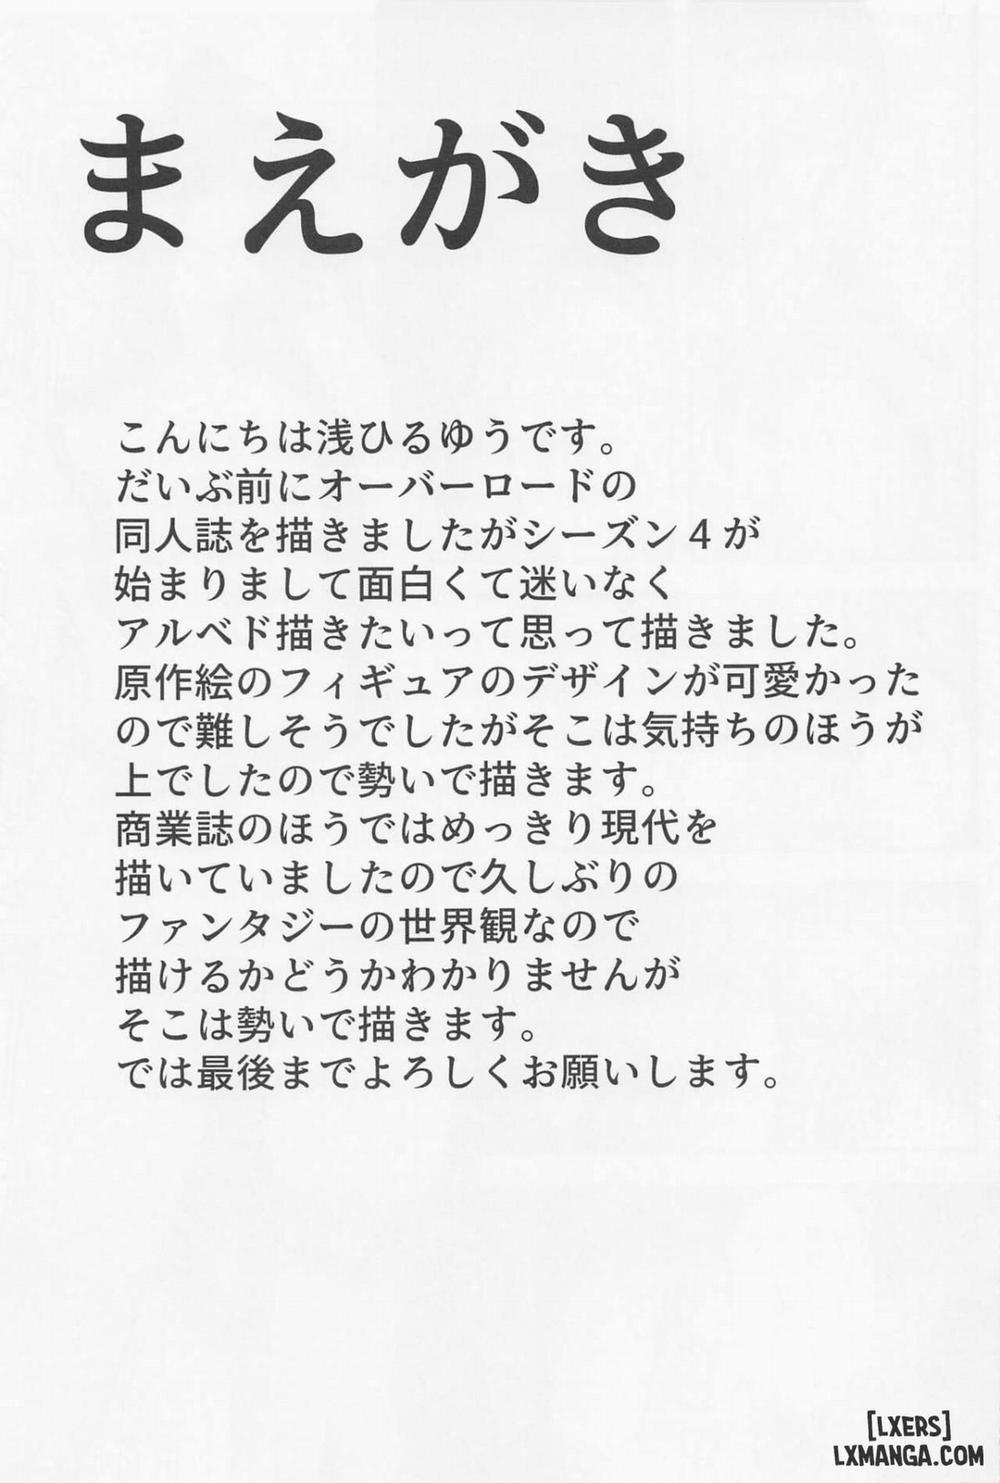 まえがき
こんにちは浅ひるゆうです。
だいぶ前にオーバーロードの
同人誌を描きましたがシーズン４が
始まりまして面白くて迷いなく
アルベド描きたいって思って描きました。
原作絵のフィギュアのデザインが可愛かった
ので難しそうでしたがそこは気持ちのほうが
上でしたので勢いで描きます。
商業誌のほうではめっきり現代を
描いていましたので久しぶりの
ファンタジーの世界観なので
描けるかどうかわかりませんが
そこは勢いで描きます。
では最後までよろしくお願いします。
[LXERS]
LXMANGA.COM